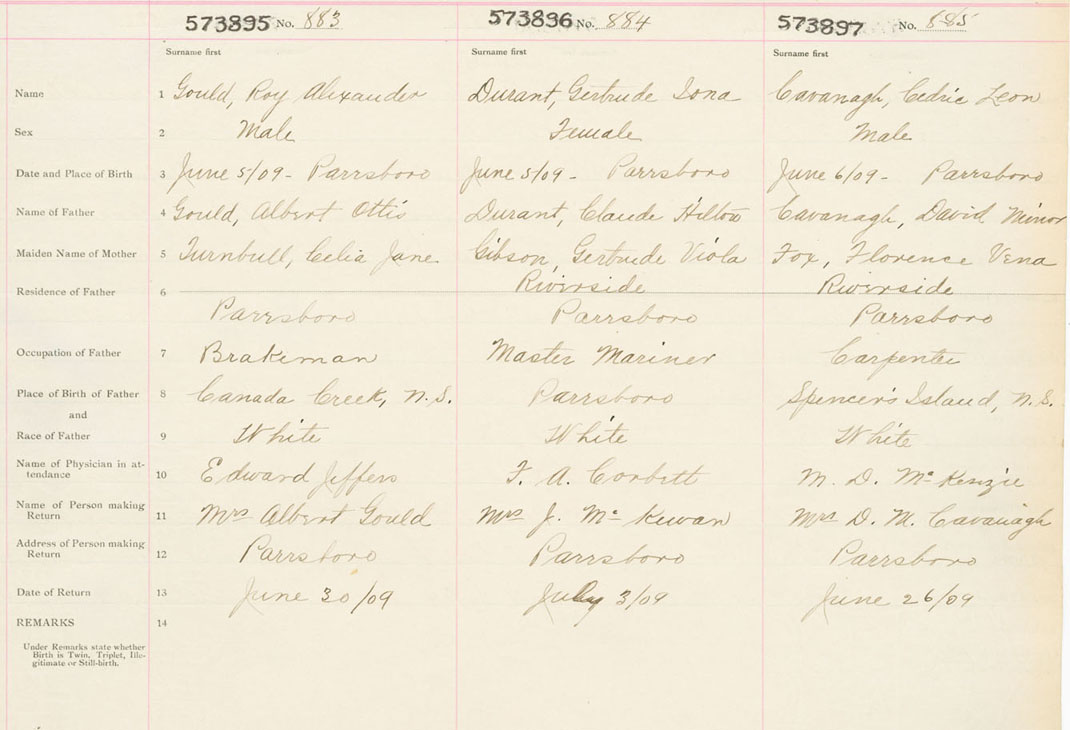 573895 No. 883 573896 No. 884 573897 No. 885
Surname first Surname first Surname first
Name 1 Gould, Roy Alexander Durant, Gertrude Iona Cavanagh, Cedric Leon
Sex 2 Male Female Male
Date and Place of Birth 3 June 5/09 - Parrsboro June 5/09 - Parrsboro June 6/09 - Parrsboro
Name of Father 4 Gould, Albert Ottis Durant, Claude Hilton Cavanagh, David Minor
Maiden Name of Mother 5 Turnbull, Celia Jane Gibson, Gertrude Viola Fox, Florence Vena
Residence of Father 6 Riverside Riverside
Parrsboro Parrsboro Parrsboro
Occupation of Father 7 Brakeman Master Mariner Carpenter
Place of Birth of Father 8 Canada Creek, N.S. Parrsboro Spencer's Island, N.S.
and
Race of Father 9 White White White
Name of Physician in at-
tendance 10 Edward Jeffers F. A. Corbett M. D. McKenzie
Name of Person making
Return 11 Mrs Albert Gould Mrs J. McKewan Mrs D. M. Cavanagh
Address of Person making
Return 12 Parrsboro Parrsboro Parrsboro
Date of Return 13 June 30/09 July 3/09 June 26/09
REMARKS 14
Under Remarks state whether
Birth is Twin, Triplet, Ille-
gitimate or Still-birth.